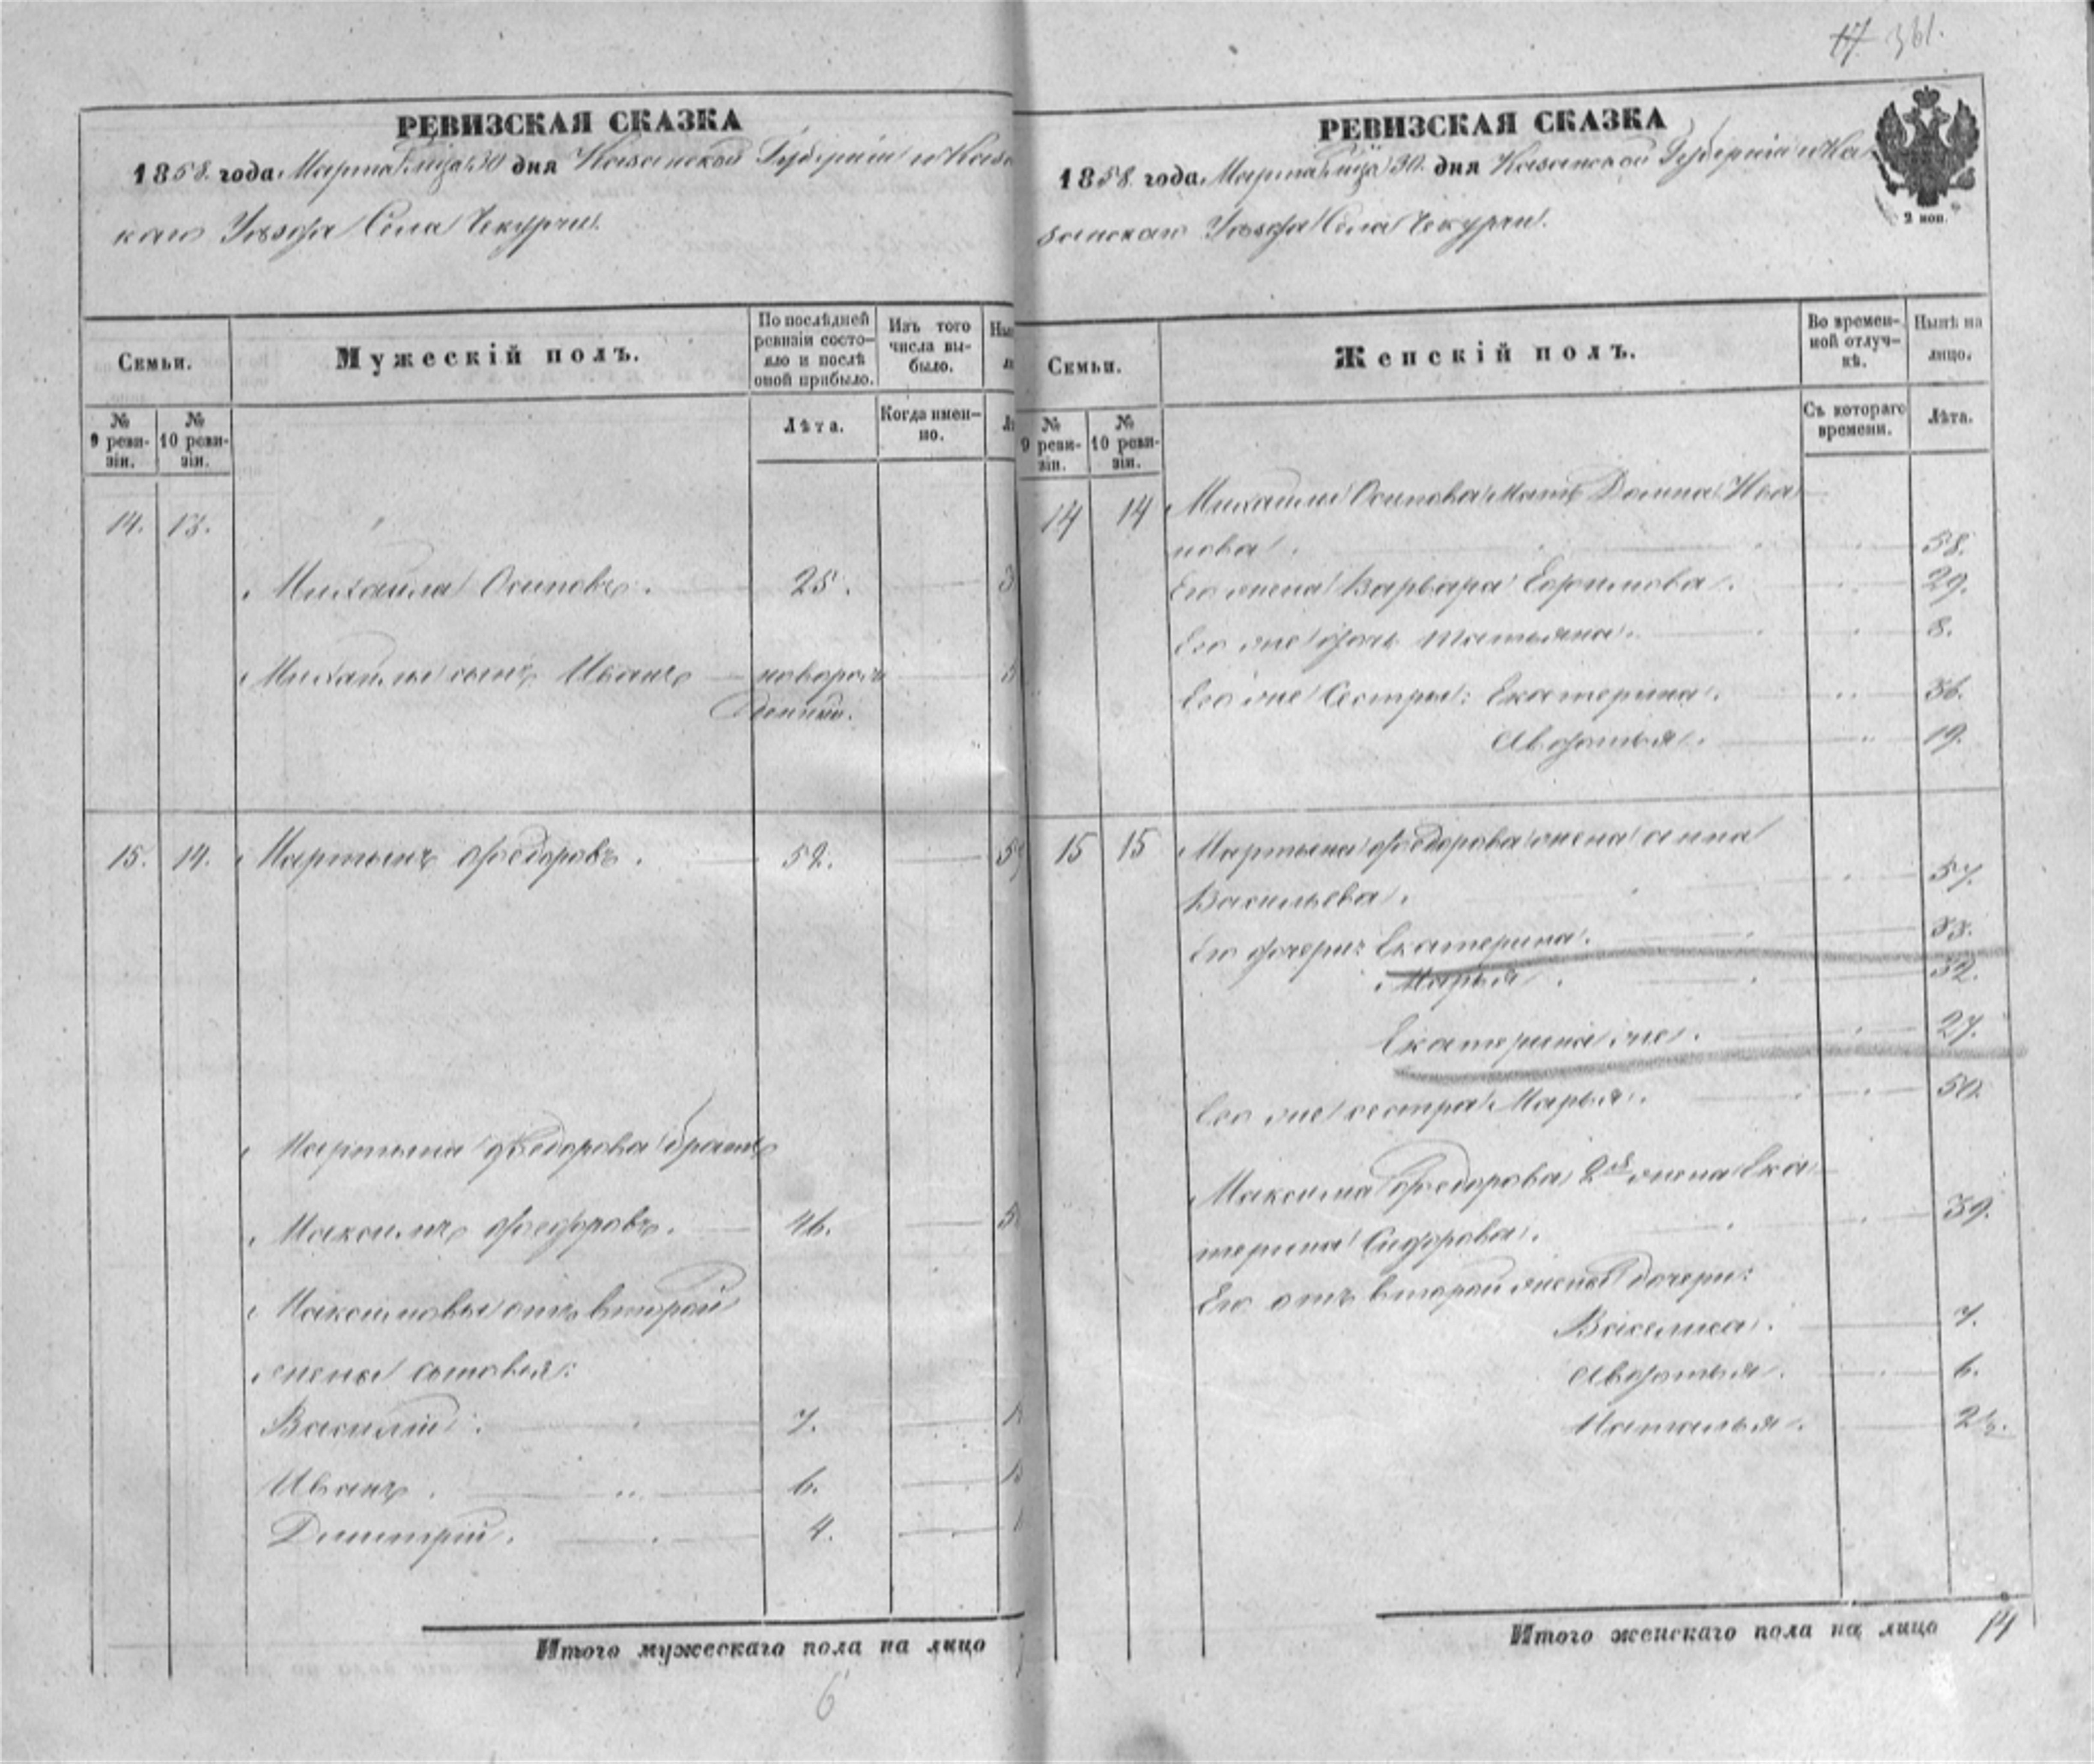 17 361.
РЕВИЗСКАЯ СКАЗКА
1858. года Марта 30 дня Казанской Губерніи и Каза
каго Уѣзда Села Чекурчи.
Семьи.
Мужескій полъ.
По послѣдней ревизіи состояло и послѣ оной прибыло.
Изъ того числа выбыло.
№ 9 ревизіи.
№ 10 ревизіи.
Лѣта.
Когда именно.
14. 13.
Михайла Осиповъ. 25.
Михайлы сынъ Иванъ новорож
денный.
15. 14. Мартынъ Федоровъ. 52.
Мартына Федорова братъ
Максимъ Федоровъ. 46.
Максимовы отъ второй
жены сыновья:
Василій. 7.
Иванъ. 6.
Дмитрій. 4.
Итого мужескаго пола на лицо
6
РЕВИЗСКАЯ СКАЗКА
1858. года Марта 30. дня Казанской Губерніи и Ка
занскаго Уѣзда Села Чекурчи.
2 коп.
Семьи.
Женскій полъ.
Во временной отлучкѣ.
Нынѣ на лицо.
№ 9 ревизіи.
№ 10 ревизіи.
Съ котораго времени.
Лѣта.
14 14 Михайлы Осипова мать Домна Ива
нова. 58.
Его жена Варвара Ефимова. 29.
Его же дочь Татьяна. 8.
Его же Сестры: Екатерина. 36.
Авдотья. 19.
15 15 Мартына Федорова жена Анна
Васильева. 57.
Его дочери: Екатерина. 33.
Марья. 32.
Екатерина же. 27.
Его же сестра Марья. 50.
Максима Федорова 2я жена Ека
терина Сидорова. 39.
Его отъ второй жены дочери:
7.
Авдотья. 6.
Наталья. 2½.
Итого женскаго пола на лицо 14